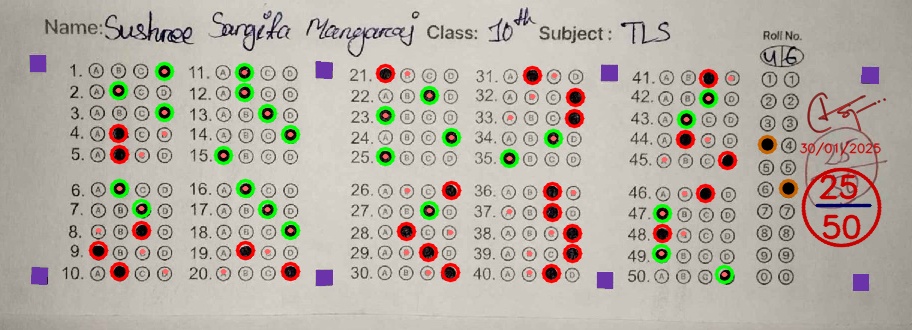 Name: Sushree Sangita Mangaraj Class: 10th Subject: TLS
Roll No.
46
1. A B C
2. A C D
3. A B C
4. A C D
5. A C D
6. A C D
7. A B D
8. A B D
9. B C D
10. A C D
11. A C D
12. A C D
13. A B D
14. A B C
15. B C D
16. A C D
17. A B D
18. A B C
19. A C D
20. A B C
21. B C D
22. A B D
23. B C D
24. A B C
25. B C D
26. A B C
27. A B D
28. B C D
29. A B D
30. A B C
31. A C D
32. A B C
33. A B C
34. A B D
35. B C D
36. A B D
37. A B D
38. A B C
39. A B C
40. A B D
41. A B D
42. A B D
43. A C D
44. A C D
45. A B C
46. A B D
47. B C D
48. B C D
49. B C D
50. A B C
1 1
2 2
3 3
4
5 5
6
7 7
8 8
9 9
0 0
30/01/2025
25
50